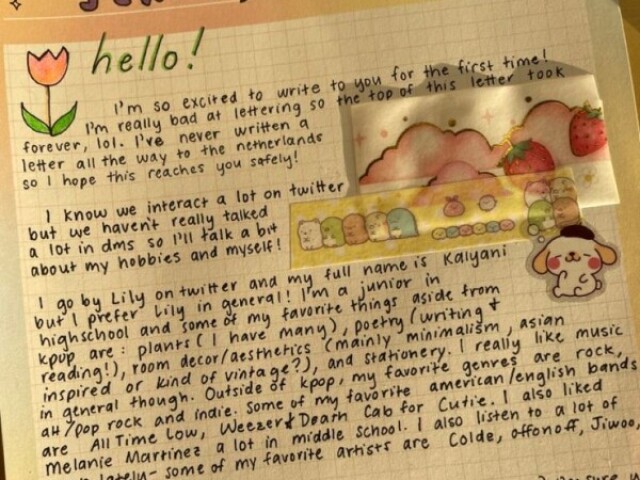 hello!
I'm so excited to write to you for the first time!
I'm really bad at lettering so the top of this letter took
forever, lol. I've never written a
letter all the way to the netherlands
so I hope this reaches you safely!
I know we interact a lot on twitter
but we haven't really talked
a lot in dms so I'll talk a bit
about my hobbies and myself!
I go by Lily on twitter and my full name is Kalyani
but I prefer Lily in general! I'm a junior in
highschool and some of my favorite things aside from
kpop are: plants (I have many), poetry (writing +
reading!), room decor/aesthetics (mainly minimalism, asian
inspired or kind of vintage?), and stationery. I really like music
in general though. Outside of kpop, my favorite genres are rock,
alt/pop rock and indie. Some of my favorite american/english bands
are All Time Low, Weezer & Death Cab for Cutie. I also liked
Melanie Martinez a lot in middle school. I also listen to a lot of
lately- some of my favorite artists are Colde, offonoff, Jiwoo,